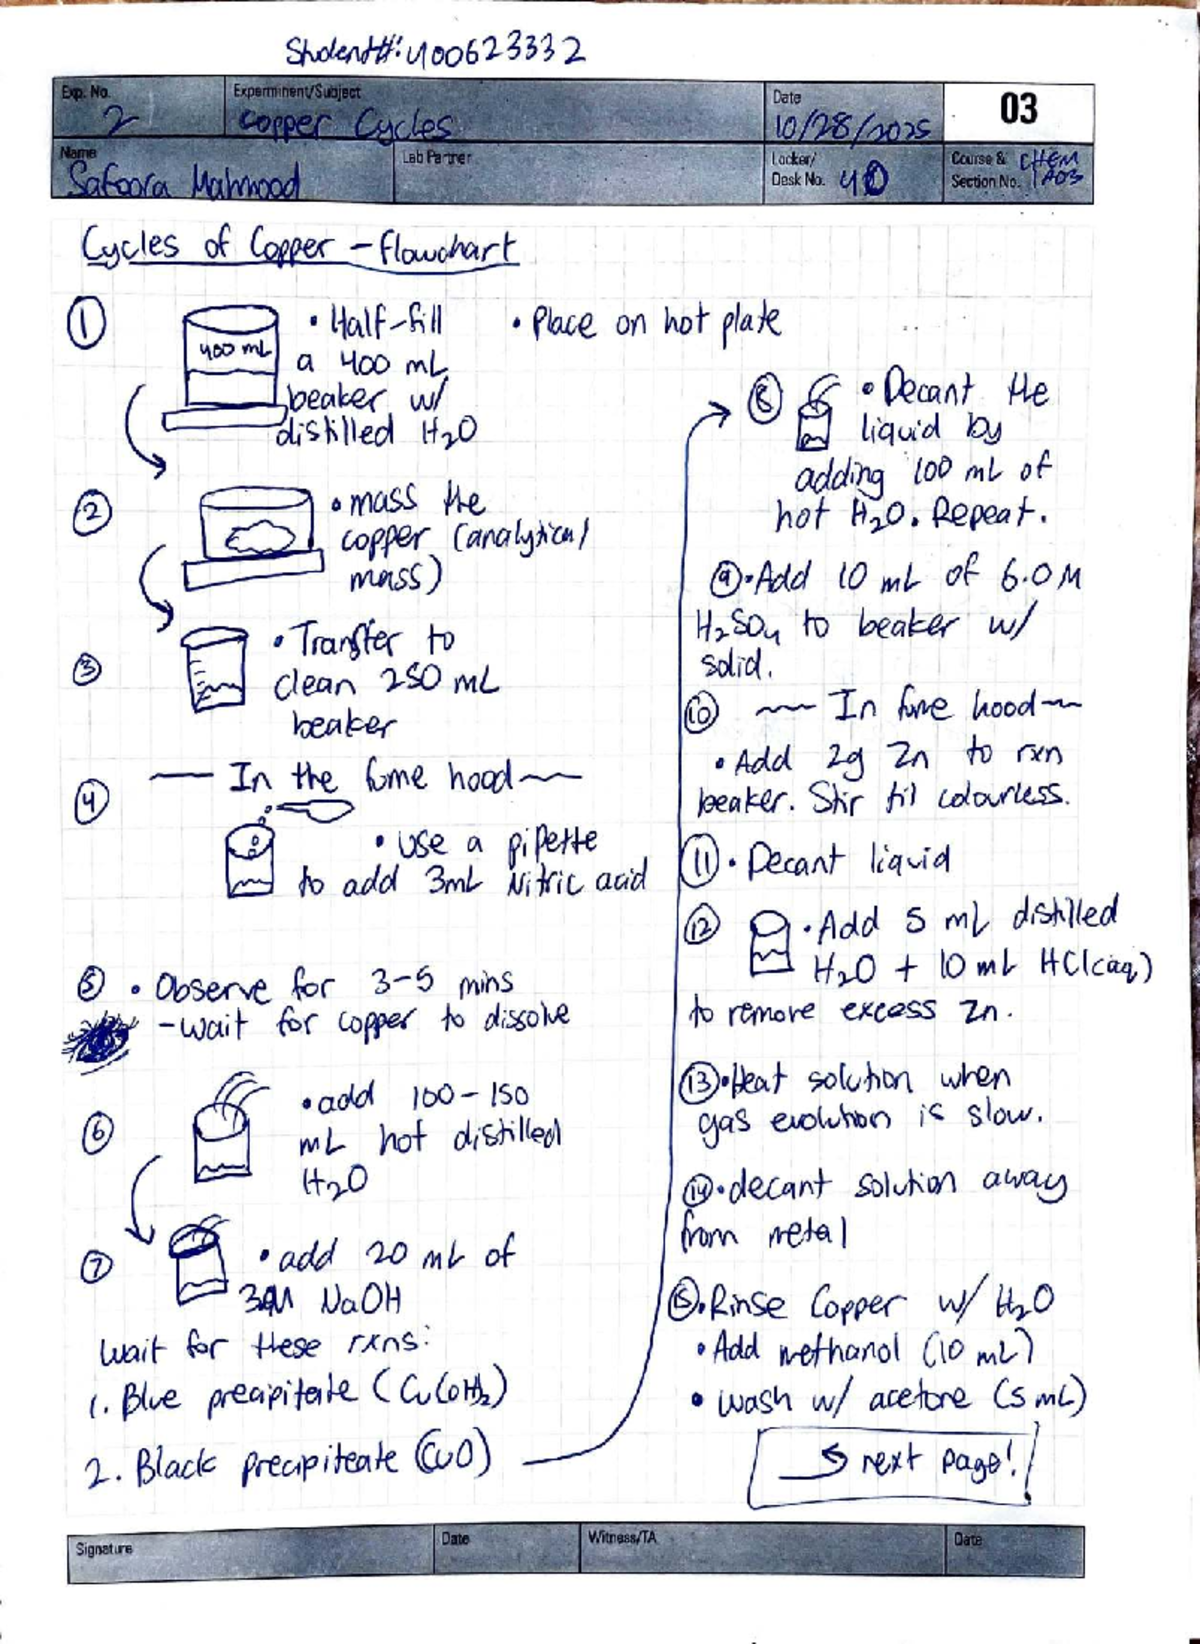 Student#: 400623332
Exp. No. 2
Experiment/Subject Copper Cycles
Date 10/28/2025
03
Name Safoora Mahmood
Lab Partner
Locker/ Desk No. 40
Course & Section No. CHEM 1A03
Cycles of Copper - Flowchart
① 400 mL
• Half-fill
a 400 mL
beaker w/
distilled H2O
• Place on hot plate
② • mass the
copper (analytical
mass)
③ • Transfer to
clean 250 mL
beaker
④ — In the fume hood ~
• use a pipette
to add 3mL Nitric acid
⑤ • Observe for 3-5 mins
- wait for copper to dissolve
⑥ • add 100-150
mL hot distilled
H2O
⑦ • add 20 mL of
3M NaOH
Wait for these rxns:
1. Blue precipitate (Cu(OH)2)
2. Black precipiteate (CuO)
⑧ • Decant the
liquid by
adding 100 mL of
hot H2O. Repeat.
⑨ • Add 10 mL of 6.0 M
H2SO4 to beaker w/
solid.
⑩ ~ In fume hood ~
• Add 2g Zn to rxn
beaker. Stir til colourless.
⑪ • Decant liquid
⑫ • Add 5 mL distilled
H2O + 10 mL HCl(aq)
to remove excess Zn.
⑬ • Heat solution when
gas evolution is slow.
⑭ • decant solution away
from metal
⑮ • Rinse Copper w/ H2O
• Add methanol (10 mL)
• Wash w/ acetone (5 mL)
↪ next page!
Signature
Date
Witness/TA
Date